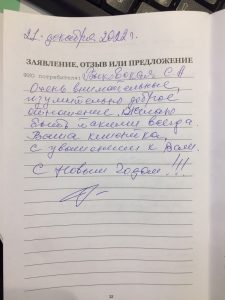 21 декабря 2022 г.
ЗАЯВЛЕНИЕ, ОТЗЫВ ИЛИ ПРЕДЛОЖЕНИЕ
ФИО потребителя: С А
Очень внимательные,
изумительно доброе
отношение. Желаю
быть такими всегда.
Ваша клиентка,
с уважением к Вам.
С Новым Годом!!!